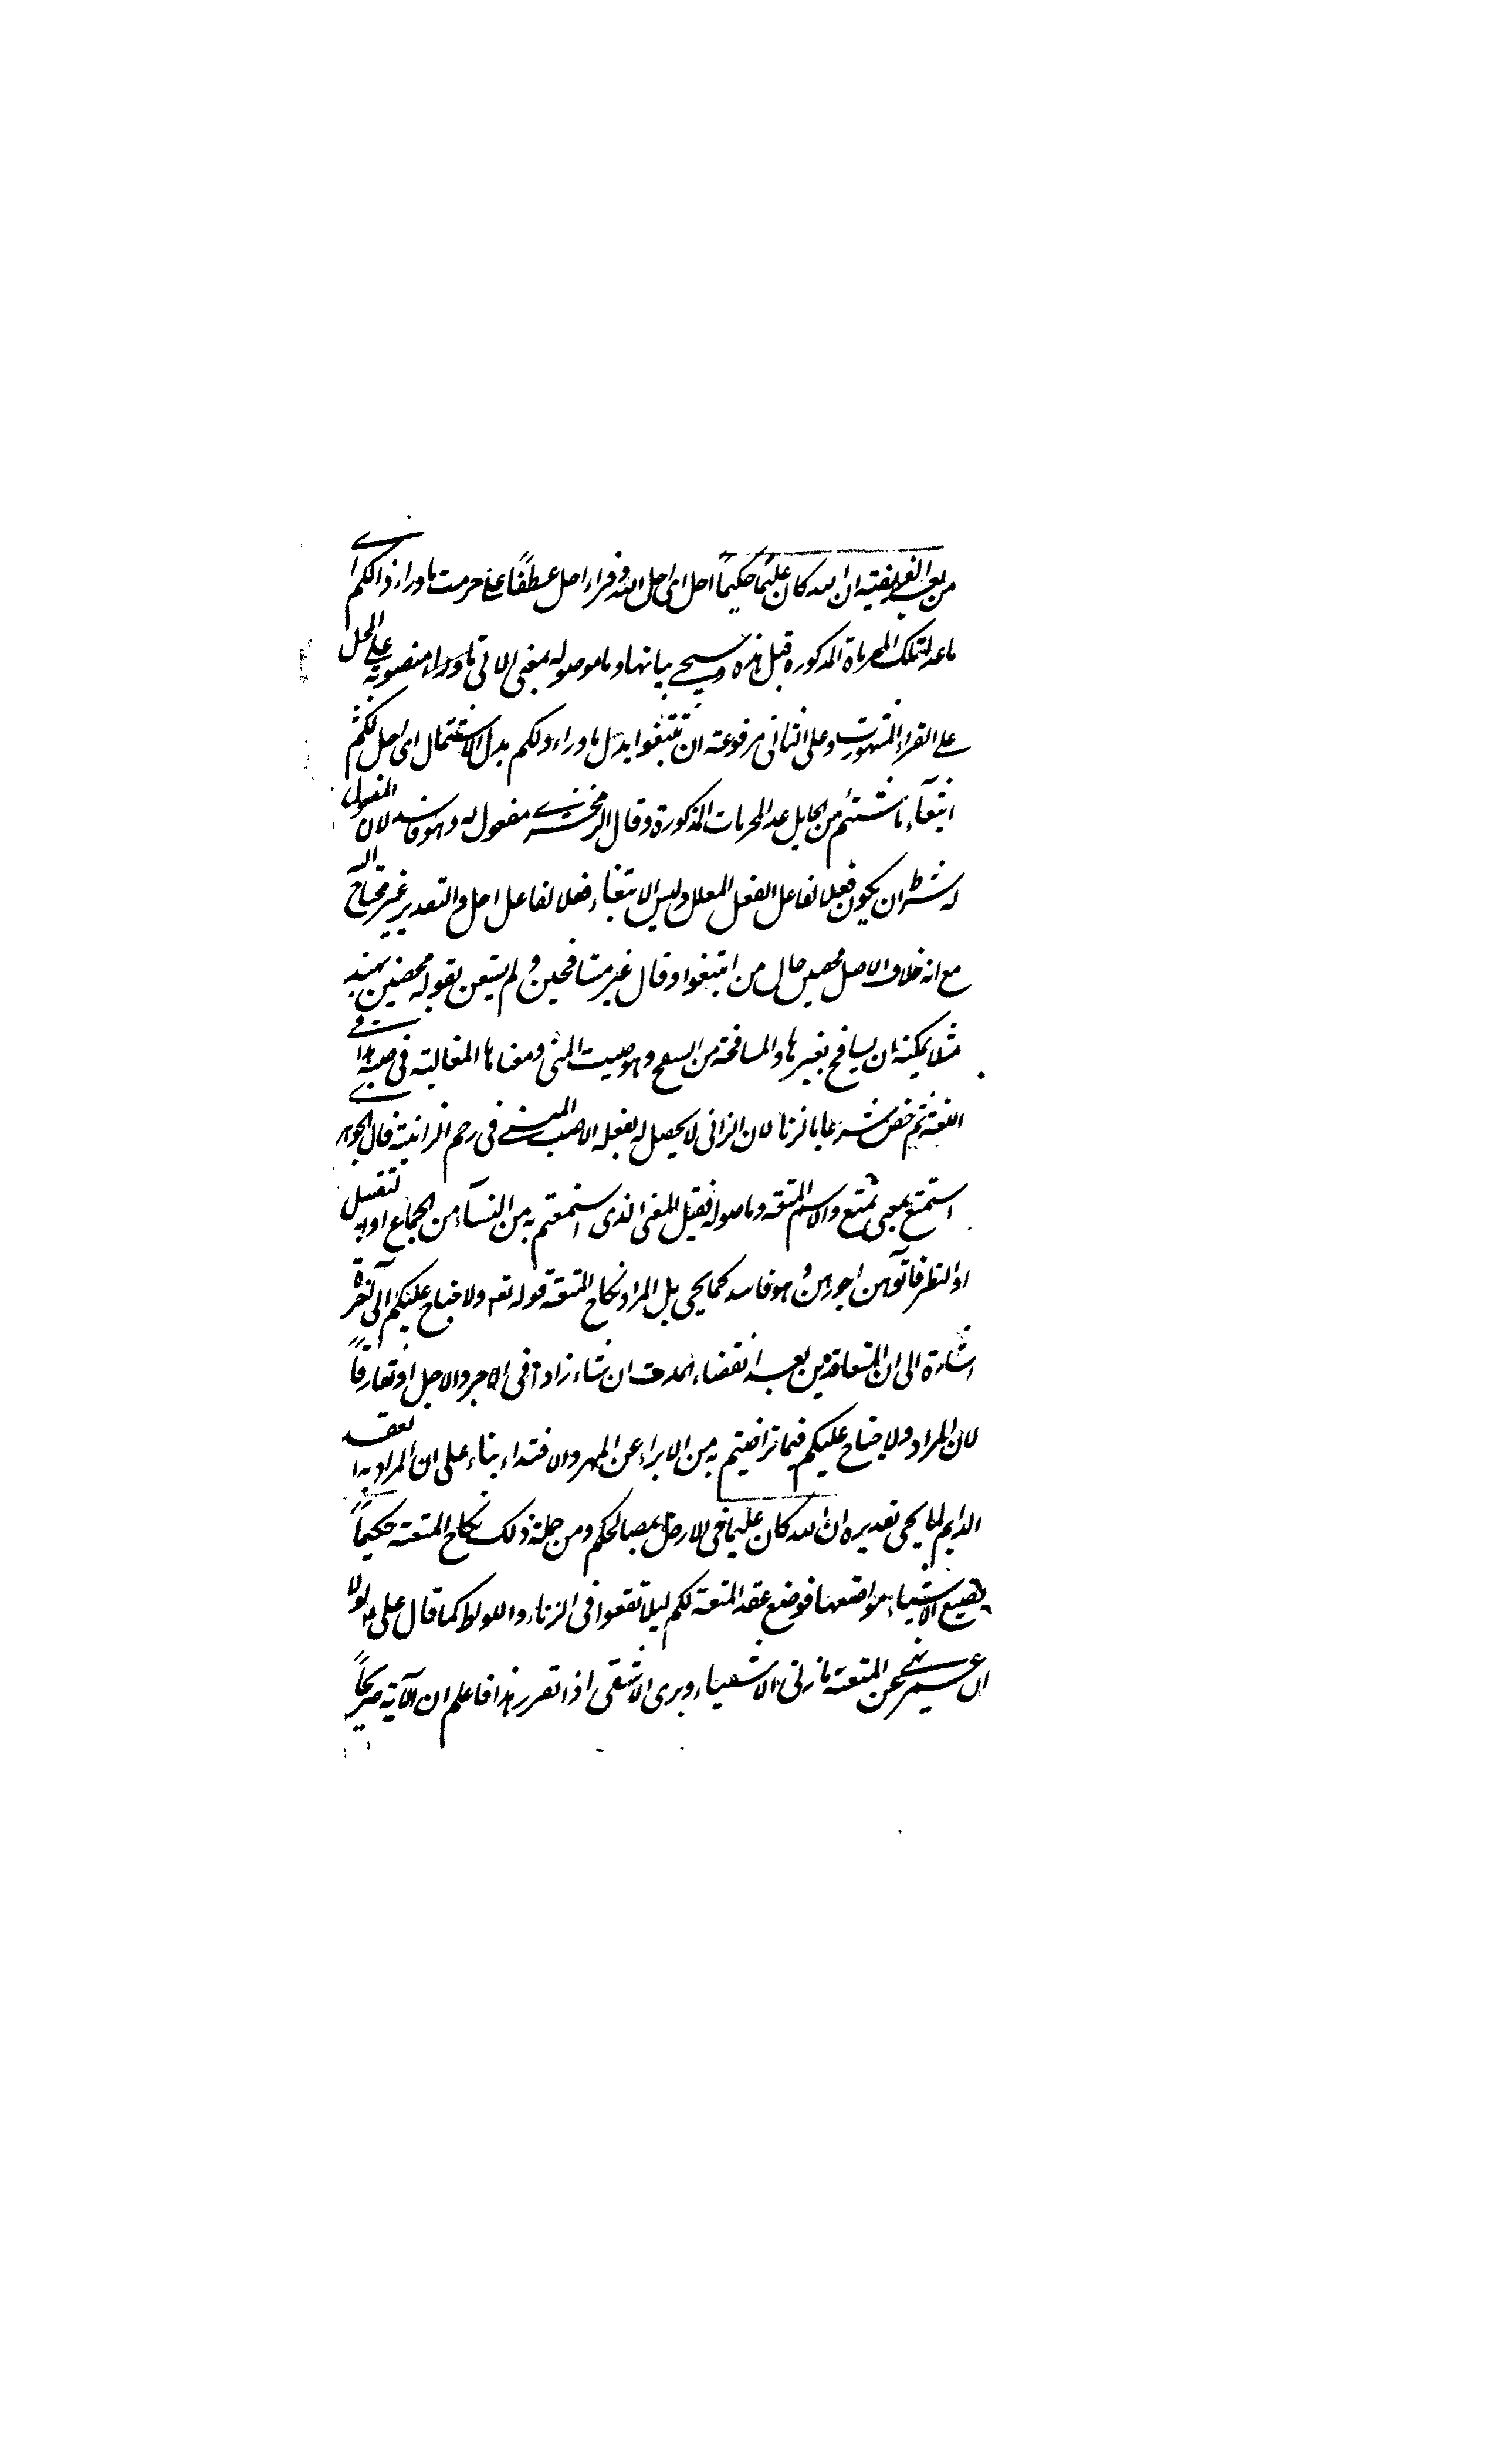 من بعد الفريضة ان الله كان عليما حكيماً احل اى احل الله و قراء احل عطفاً على حرمت ما وراء ذالكم اى
ما عدا تلك المحرماة المذكورة قبل هذه وسيجى بيانها وما موصوله بمعنى الاتى ما وراء منصوبة على المحل
على القراءة المشهورة وعلى الثانى مرفوعة ان تبتغوا بدل ما وراء ذلكم بدل الاشتمال اى احل لكم
ابتغاء ما شئتم من الحلايل عد المحرمات المذكورة وقال الزمخشرى مفعول له وهو فاسد لان المفعول
له شرط ان يكون فعلا لفاعل الفعل المعلل وليس الابتغاء فعلا لفاعل احل والتقدير غير محتاج اليه
مع انه خلاف الاصل محصنين حال من ابتغوا وقال غير مسافحين ولم يستغن بقوله محصنين بهند
مثلا يمكنه ان يسافح بغيرها والمسافحة من السفح وهو صبت المنى ومعناها المغالبة فى صبه هذا فى
اللغة ثم خص شرعا بالزنا لان الزانى لا يحصل له بفعله الا صب المنى فى رحم الزانية قال الجوهرى
استمتع بمعنى تمتع والاسم المتعة وما صوله فقيل المعنى الذى استمتعتم به من النسآء من الجماع او التقبيل
او النظر فآتوهن اجورهن وهو فاسد كما يجى بل المراد نكاح المتعة قوله تع ولا جناح عليكم الى آخره
اشارة الى ان المتعاقدين بعد انقضاء المدت ان شاء زادا فى الاجر والاجل او تفارقاً
لان المراد ولا جناح عليكم فيما تراضيتم به من الابراء عن المهر والافتداء بناء على ان المراد به العقد
الدايم لما يجى تقديره ان الله كان عليما فى الارض بمصالحكم ومن جملة ذلك نكاح المتعة حكيماً
يضيع الاشياء مواضعها فوضع عقد المتعة لكم ليلا تقعوا فى الزناء واللوط كما قال على ع لولا
ان عمر نهى عن المتعة ما زنى الا شقياء ويرى الا شقى اذا تقرر هذا فاعلم ان الآية صريحاً